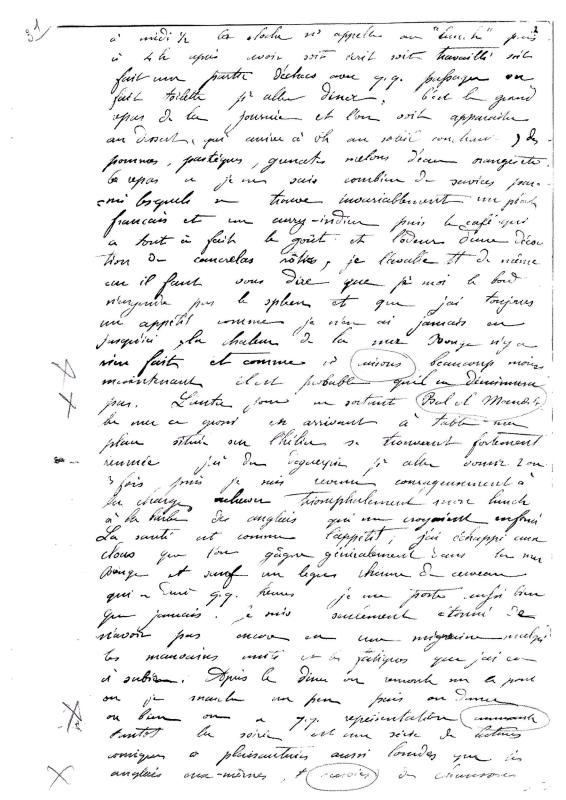 31
à midi ½ la cloche ns appelle au "lunch" puis
à 4h après avoir soit écrit soit travaillé soit
fait une partie d'échecs avec q.q. passager on
fait toilette pr aller dîner, c'est le grand
repas de la journée et l'on voit apparaître
au dessert, qui arrive à 6h au soleil couchant ) des
pommes, pastèques, melons d'eau oranges etc.
le repas a je ne sais combien de services parmi
lesquels on trouve invariablement un plat
français et un curry-indien puis le café qui
a tout à fait le goût et l'odeur d'une décoc
tion de cancrelas rôtis, je l'avale tt de même
car il faut vous dire que pr moi le bord
n'engendre pas le spleen et que j'ai toujours
un appétit comme je n'en ai jamais eu
jusqu'ici, la chaleur de la mer Rouge n'y a
rien fait et comme ns beaucoup moins
maintenant il est probable qu'il ne diminuera
pas. L'autre jour en sortant Bab el Mandeb
la mer en arrivant à table ma
place située sur l'hélice se trouvant fortement
remuée j'ai dû déguerpir pr aller vomir 2 ou
3 fois, puis je suis revenu courageusement à
la charge achever triomphalement mon lunch
à la barbe des anglais qui me croyaient enfoncé
La santé est comme l'appétit, j'ai échappé aux
clous que l'on gagne généralement dans la mer
Rouge et sauf un léger rhume de cerveau
qui a duré q.q. heures je me porte aussi bien
que jamais. je suis seulement étonné de
n'avoir pas encore eu une migraine malgré
les mauvaises nuits et les fatigues que j'ai eu
à subir. Après le dîner on remonte sur le pont
où je marche un peu puis on danse
ou bien on a q.q. représentation
tantôt la soirée est une série de lectures
comiques à plaisanteries aussi lourdes que les
anglais eux-mêmes, de chansons